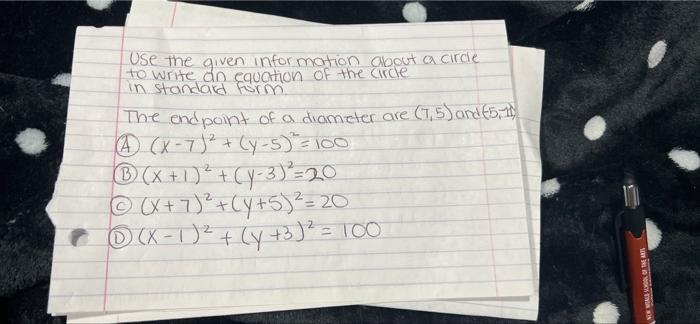 Use the given information about a circle
to write an equation of the circle
in standard form.
The endpoint of a diameter are (7,5) and (-5,-11)
A (x-7)² + (y-5)² = 100
B (x+1)² + (y-3)² = 20
C (x+7)² + (y+5)² = 20
D (x-1)² + (y+3)² = 100
NEW WORLD SCHOOL OF THE ARTS